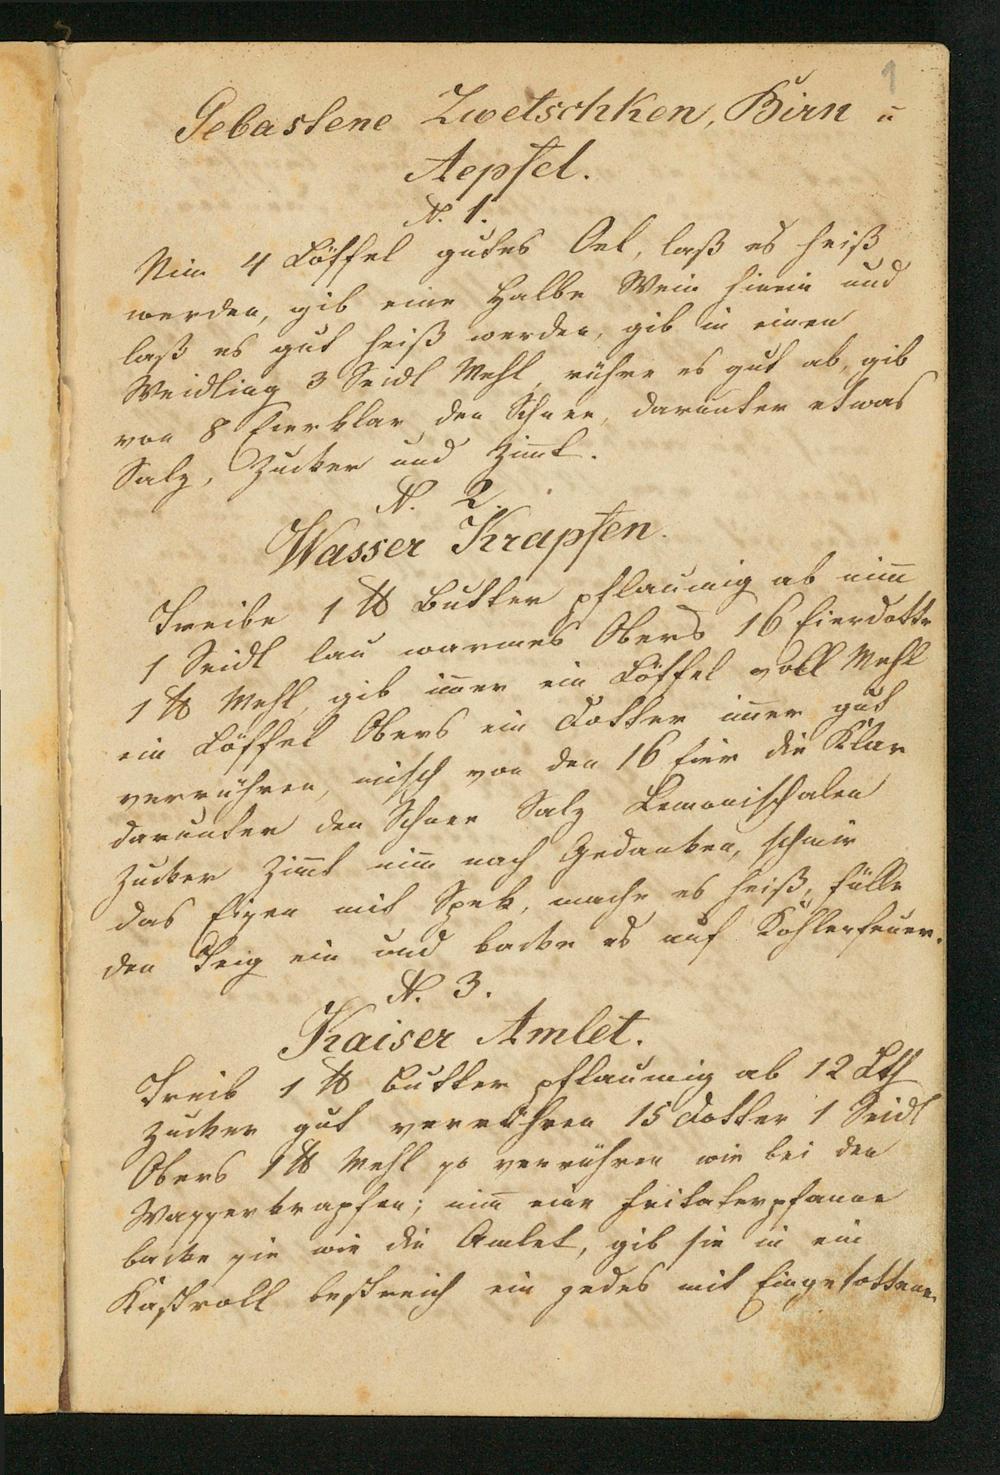 1
Gebastene Zwetschken, Birn u
Aepfel.
N. 1.
Nim 4 Löffel gutes Oel, laß es heiß
werden, gib eine Halbe Wein hinein und
laß es gut heiß werden, gib in einen
Weidling 3 Seidl Mehl, rühre es gut ab, gib
von 8 Eierklar den Schnee, darunter etwas
Salz, Zucker und Zimt.
N. 2.
Wasser Krapfen.
Treibe 1 ℔ Butter pflaumig ab nimm
1 Seidl lau warmes Obers 16 Eierdotte
1 ℔ Mehl, gib imer ein Löffel voll Mehl
ein Löffel Obers ein Dotter imer gut
verrühren, misch von den 16 Eier die Klar
darunter den Schnee Salz Lemonischalen
Zucker Zimt nim nach Gedanken, schmir
das Eisen mit Spek, mache es heiß, fülle
den Teig ein und backe es auf Kohlenfeuer.
N. 3.
Kaiser Amlet.
Treib 1 ℔ Butter pflaumig ab 12 Lth
Zucker gut verrühren 15 Dotter 1 Seidl
Obers 1 ℔ Mehl so verrühren wie bei den
Wasserkrapfen; nim eine pfanne
backe sie wie die Amlet, gib sie in ein
Kastroll bestreich ein jedes mit Eingesottene